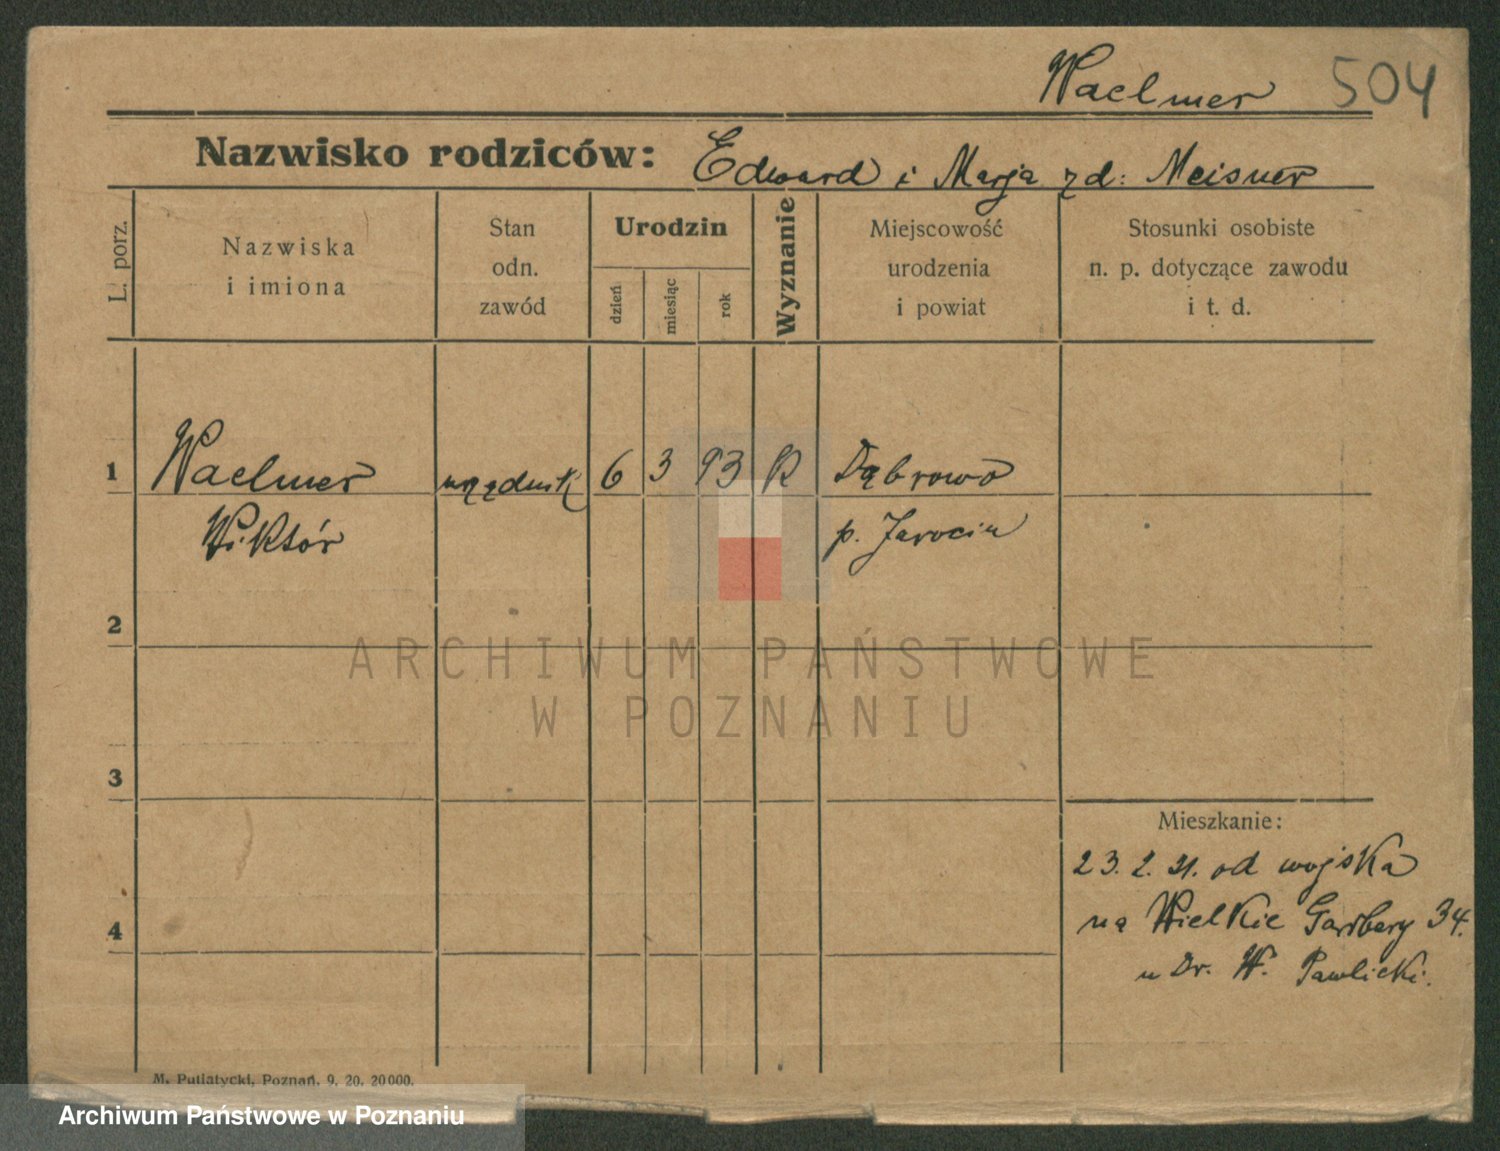 Waelmer 504
Nazwisko rodziców: Edward i Marja zd: Meisner
L. porz.
Nazwiska
i imiona
Stan
odn.
zawód
Urodzin
dzień
miesiąc
rok
Wyznanie
Miejscowość
urodzenia
i powiat
Stosunki osobiste
n. p. dotyczące zawodu
i t. d.
1 Waelmer urzędnik 6 3 93 R Dąbrowa
Wiktór p. Jarocin
2
3
4
Mieszkanie:
23. 2. 21. od wojska
na Wielkie Garbary 34.
u Dr. W. Pawlicki.
M. Putiatycki, Poznań, 9. 20. 20000.
ARCHIWUM PAŃSTWOWE
W POZNANIU
Archiwum Państwowe w Poznaniu